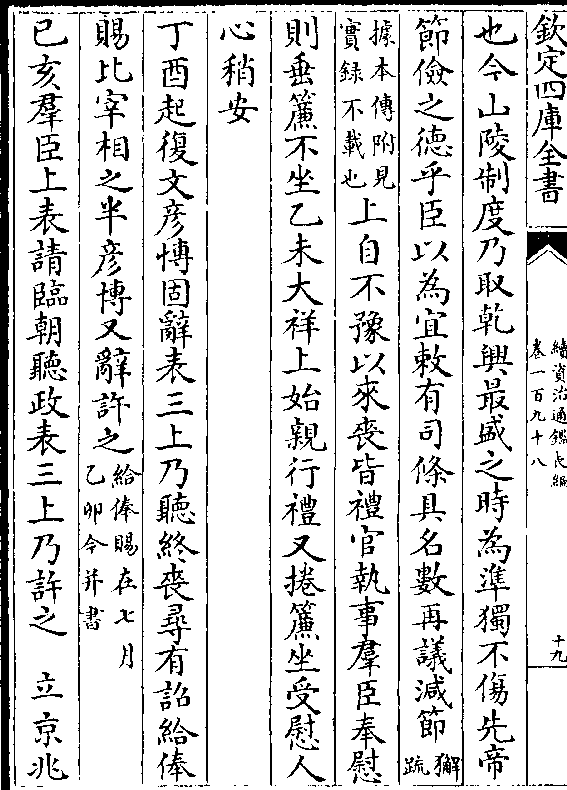 欽定四庫全書
續資治通鑑長編
卷一百九十八
十九
也今山陵制度乃取乾興最盛之時為準獨不傷先帝
節儉之德乎臣以為宜敕有司條具名數再議減節
獬疏
據本傳附見
實録不載也
上自不豫以來喪皆禮官執事羣臣奉慰
則垂簾不坐乙未大祥上始親行禮又捲簾坐受慰人
心稍安
丁酉起復文彦博固辭表三上乃聽終喪尋有詔給俸
賜比宰相之半彦博又辭許之
給俸賜在七月
乙卯今并書
已亥羣臣上表請臨朝聽政表三上乃許之　立京兆